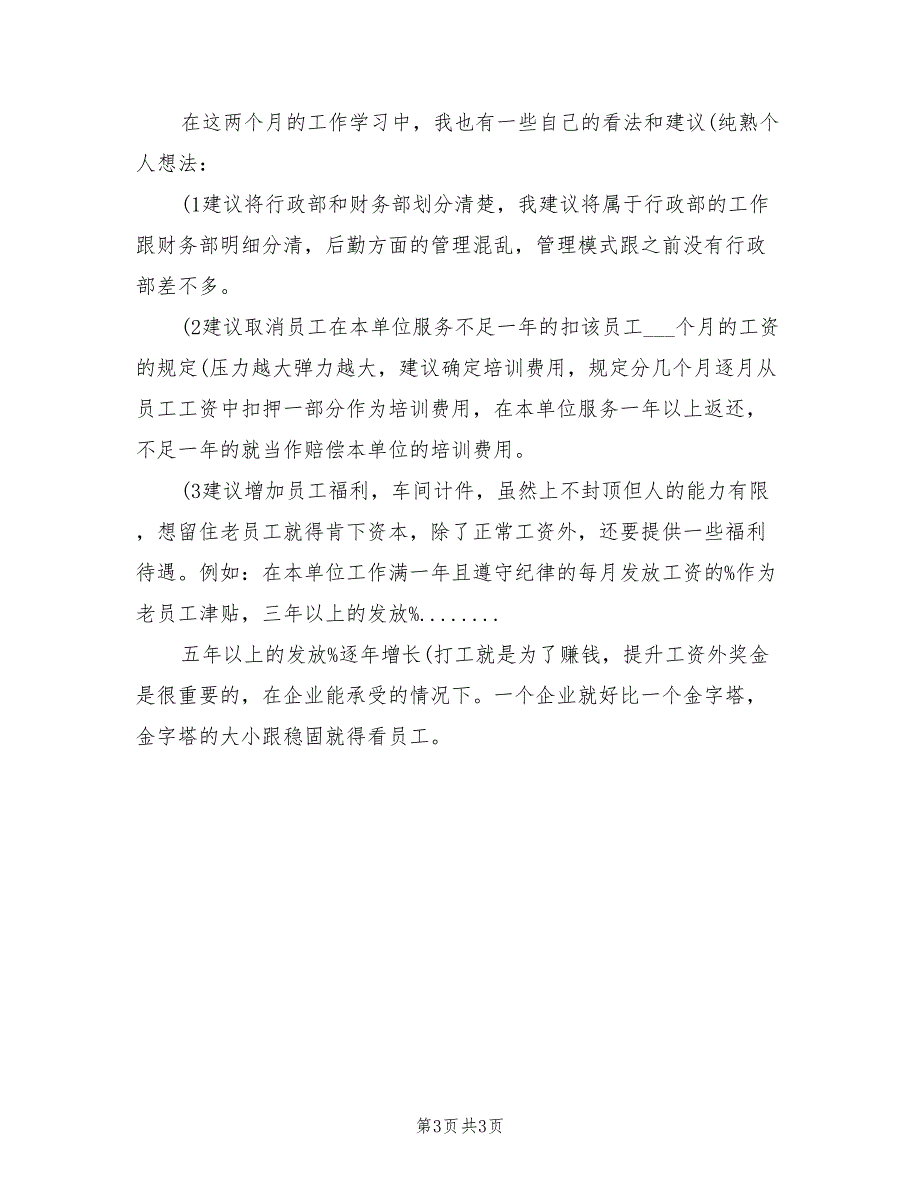 在这两个月的工作学习中，我也有一些自己的看法和建议(纯熟个
人想法：
(1建议将行政部和财务部划分清楚，我建议将属于行政部的工作
跟财务部明细分清，后勤方面的管理混乱，管理模式跟之前没有行政
部差不多。
(2建议取消员工在本单位服务不足一年的扣该员工___个月的工资
的规定(压力越大弹力越大，建议确定培训费用，规定分几个月逐月从
员工工资中扣押一部分作为培训费用，在本单位服务一年以上返还，
不足一年的就当作赔偿本单位的培训费用。
(3建议增加员工福利，车间计件，虽然上不封顶但人的能力有限
，想留住老员工就得肯下资本，除了正常工资外，还要提供一些福利
待遇。例如：在本单位工作满一年且遵守纪律的每月发放工资的%作为
老员工津贴，三年以上的发放%........
五年以上的发放%逐年增长(打工就是为了赚钱，提升工资外奖金
是很重要的，在企业能承受的情况下。一个企业就好比一个金字塔，
金字塔的大小跟稳固就得看员工。
第3页 共3页